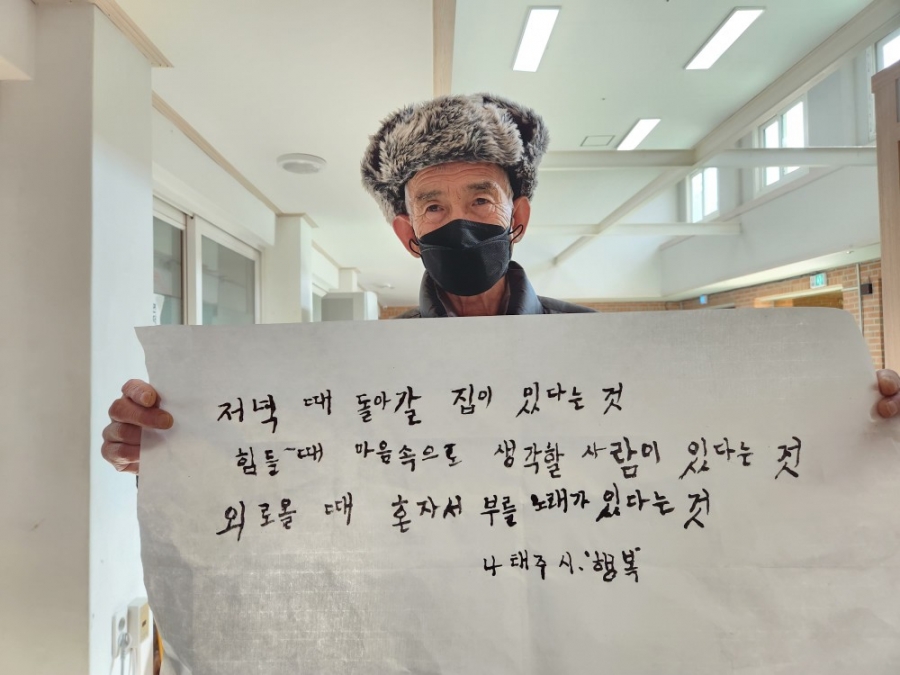 저녁 때 돌아갈 집이 있다는 것
힘들 때 마음속으로 생각할 사람이 있다는 것
외로올 때 혼자서 부를 노래가 있다는 것
나태주 시. "행복"